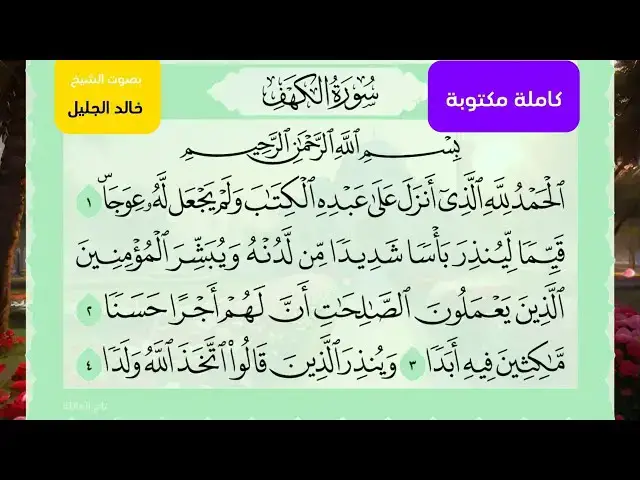 بصوت الشيخ
خالد الجليل
سُورَةُ الكَهْفِ
كاملة مكتوبة
بِسْمِ ٱللَّهِ ٱلرَّحْمَٰنِ ٱلرَّحِيمِ
ٱلْحَمْدُ لِلَّهِ ٱلَّذِىٓ أَنزَلَ عَلَىٰ عَبْدِهِ ٱلْكِتَٰبَ وَلَمْ يَجْعَل لَّهُۥ عِوَجَاۜ ١
قَيِّمًا لِّيُنذِرَ بَأْسًا شَدِيدًا مِّن لَّدُنْهُ وَيُبَشِّرَ ٱلْمُؤْمِنِينَ
ٱلَّذِينَ يَعْمَلُونَ ٱلصَّٰلِحَٰتِ أَنَّ لَهُمْ أَجْرًا حَسَنًا ٢
مَّٰكِثِينَ فِيهِ أَبَدًا ٣ وَيُنذِرَ ٱلَّذِينَ قَالُوا۟ ٱتَّخَذَ ٱللَّهُ وَلَدًا ٤